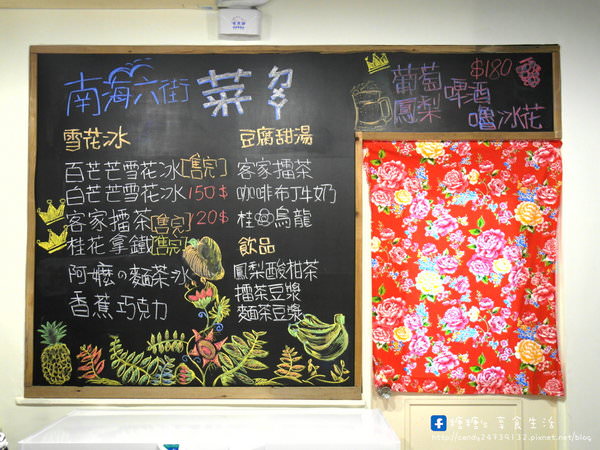 南海六街 菜ㄉㄢ
雪花冰
百芒芒雪花冰[售完]
白芒芒雪花冰 150$
客家擂茶[售完] 120$
桂花拿鐵[售完]
阿嬤の麵茶冰
香蕉巧克力
豆腐甜湯
客家擂茶
咖啡布丁牛奶
烏龍
飲品
鳳梨酸柑茶
擂茶豆漿
麵茶豆漿
$180
葡萄
鳳梨
啤酒
嚕冰花
糖糖's 享食生活
http://cendy24734132.pixnet.net/blog